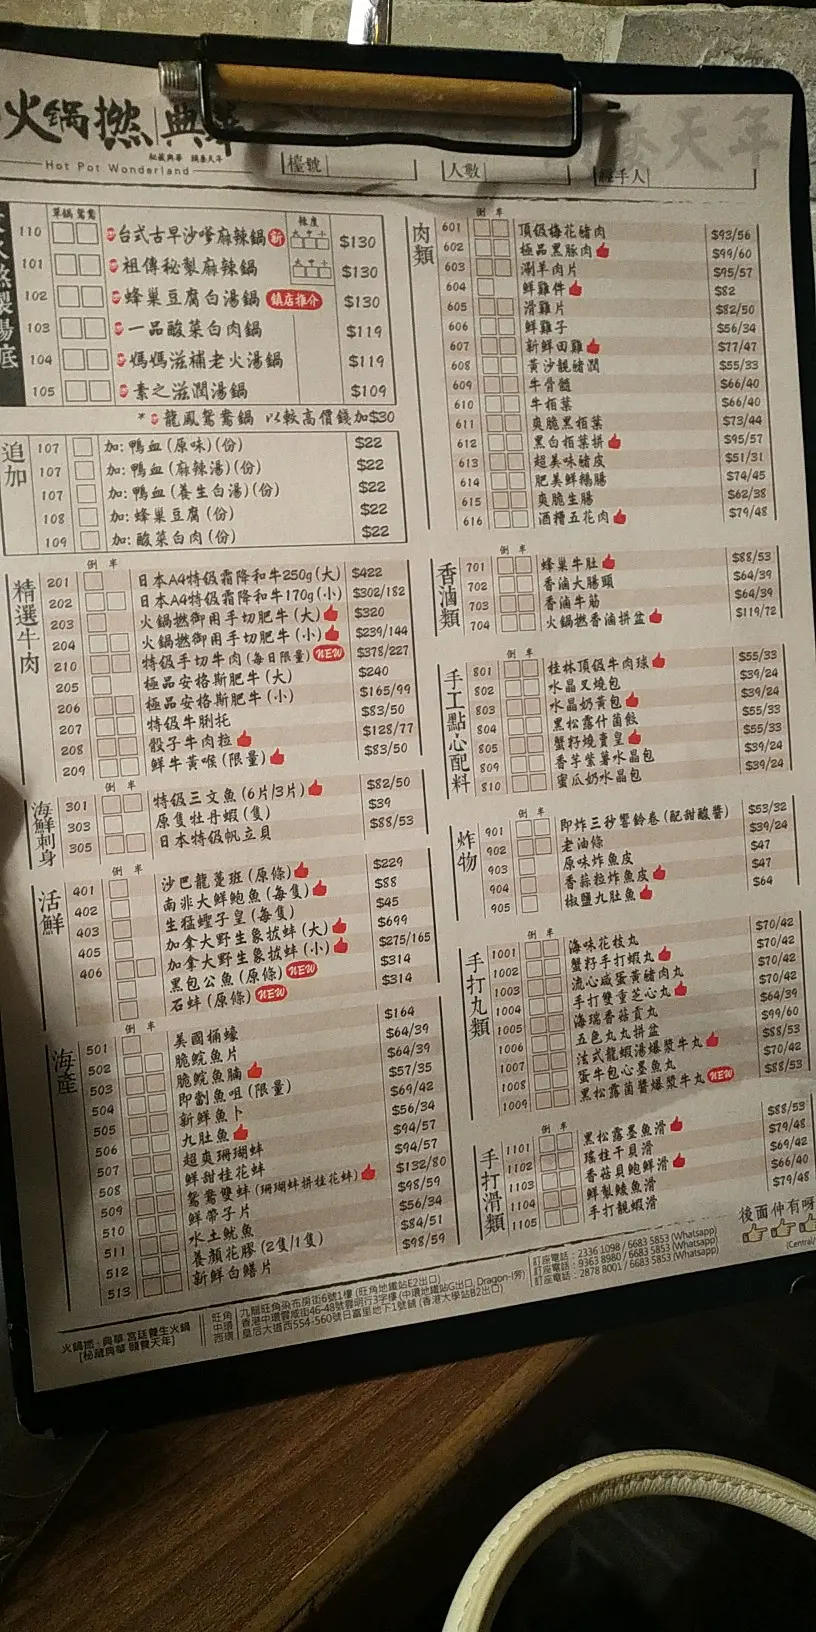 火鍋撚 典華
秘藏典華 頤養天年
Hot Pot Wonderland
檯號
人數
經手人
養天年
單鍋 鴛鴦
辣度
大 中 小
110 台式古早沙嗲麻辣鍋 新 $130
101 祖傳秘製麻辣鍋 $130
102 蜂巢豆腐白湯鍋 鎮店推介 $130
103 一品酸菜白肉鍋 $119
104 媽媽滋補老火湯鍋 $119
105 素之滋潤湯鍋 $109
* 龍鳳鴛鴦鍋 以較高價錢加$30
追加
107 加: 鴨血 (原味) (份) $22
107 加: 鴨血 (麻辣湯) (份) $22
107 加: 鴨血 (養生白湯) (份) $22
108 加: 蜂巢豆腐 (份) $22
109 加: 酸菜白肉 (份) $22
精選牛肉
例 半
201 日本A4特級霜降和牛250g (大) $422
202 日本A4特級霜降和牛170g (小) $302/182
203 火鍋撚御用手切肥牛 (大) $320
204 火鍋撚御用手切肥牛 (小) $239/144
210 特級手切牛肉 (每日限量) NEW $378/227
205 極品安格斯肥牛 (大) $240
206 極品安格斯肥牛 (小) $165/99
207 特級牛脷托 $83/50
208 骰子牛肉粒 $128/77
209 鮮牛黃喉 (限量) $83/50
海鮮刺身
例 半
301 特級三文魚 (6片/3片) $82/50
303 原隻牡丹蝦 (隻) $39
305 日本特級帆立貝 $88/53
活鮮
例 半
401 沙巴龍躉班 (原條) $229
402 南非大鮮鮑魚 (每隻) $88
403 生猛蟶子皇 (每隻) $45
405 加拿大野生象拔蚌 (大) $699
406 加拿大野生象拔蚌 (小) $275/165
黑包公魚 (原條) NEW $314
石蚌 (原條) NEW $314
海產
例 半
501 美國桶蠔 $164
502 脆鯇魚片 $64/39
503 脆鯇魚腩 $64/39
504 即劏魚咀 (限量) $57/35
505 新鮮魚卜 $69/42
506 九肚魚 $56/34
507 超爽珊瑚蚌 $94/57
508 鮮甜桂花蚌 $94/57
509 鴛鴦雙蚌 (珊瑚蚌拼桂花蚌) $132/80
510 鮮帶子片 $98/59
511 水土魷魚 $56/34
512 養顏花膠 (2隻/1隻) $84/51
513 新鮮白鱔片 $98/59
肉類
例 半
601 頂級梅花豬肉 $93/56
602 極品黑豚肉 $99/60
603 涮羊肉片 $95/57
604 鮮雞件 $82
605 滑雞片 $82/50
606 鮮雞子 $56/34
607 新鮮田雞 $77/47
608 黃沙靚豬潤 $55/33
609 牛骨髓 $66/40
610 牛柏葉 $66/40
611 爽脆黑柏葉 $73/44
612 黑白柏葉拼 $95/57
613 超美味豬皮 $51/31
614 肥美鮮鵝腸 $74/45
615 爽脆生腸 $62/38
616 酒糟五花肉 $79/48
香滷類
例 半
701 蜂巢牛肚 $88/53
702 香滷大腸頭 $64/39
703 香滷牛筋 $64/39
704 火鍋撚香滷拼盆 $119/72
手工點心配料
例 半
801 桂林頂級牛肉球 $55/33
802 水晶叉燒包 $39/24
803 水晶奶黃包 $39/24
804 黑松露什菌餃 $55/33
805 蟹籽燒賣皇 $55/33
809 香芋紫薯水晶包 $39/24
810 蜜瓜奶水晶包 $39/24
炸物
例 半
901 即炸三秒響鈴卷 (配甜酸醬) $53/32
902 老油條 $39/24
903 原味炸魚皮 $47
904 香蒜粒炸魚皮 $47
905 椒鹽九肚魚 $64
手打丸類
例 半
1001 海味花枝丸 $70/42
1002 蟹籽手打蝦丸 $70/42
1003 流心咸蛋黃豬肉丸 $70/42
1004 手打雙重芝心丸 $70/42
1005 海瑞香菇貢丸 $64/39
1006 五色丸丸拼盆 $99/60
1007 法式龍蝦湯爆漿牛丸 $88/53
1008 蛋牛包心墨魚丸 $70/42
1009 黑松露菌醬爆漿牛丸 NEW $88/53
手打滑類
例 半
1101 黑松露墨魚滑 $88/53
1102 瑤柱干貝滑 $79/48
1103 香菇貝鮑鮮滑 $69/42
1104 鮮製鯪魚滑 $66/40
1105 手打靚蝦滑 $79/48
後面仲有呀
(Central
火鍋撚‧典華 宮廷養生火鍋
[秘藏典華 頤養天年]
旺角 九龍旺角染布房街6號1樓 (旺角地鐵站E2出口) 訂座電話：2336 1098 / 6683 5853 (Whatsapp)
中環 香港中環雲咸街46-48號雲明行3字樓 (中環地鐵站G出口, Dragon-I旁) 訂座電話：9363 8980 / 6683 5853 (Whatsapp)
西環 皇后大道西554-560號日富里地下1號舖 (香港大學站B2出口) 訂座電話：2878 8001 / 6683 5853 (Whatsapp)